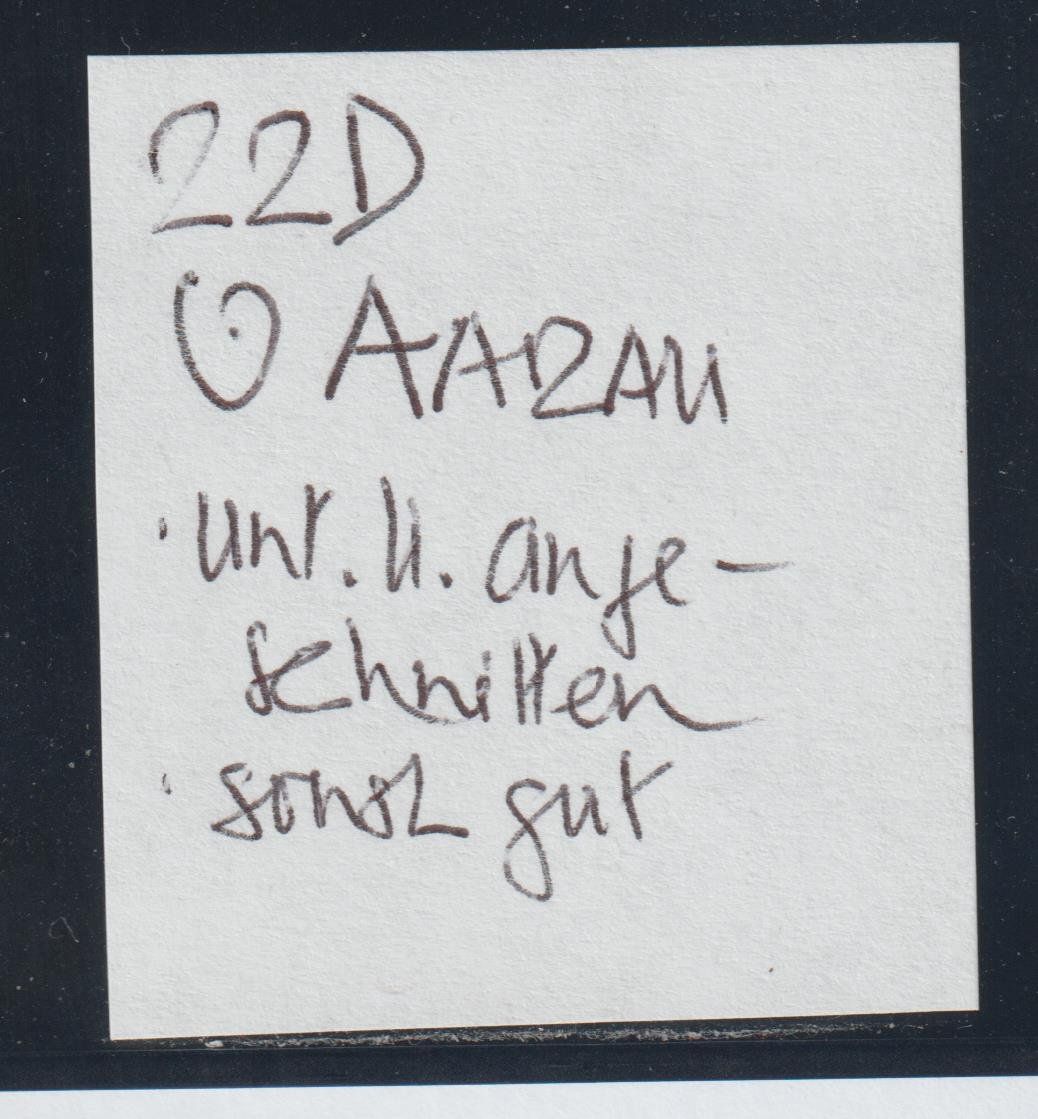 22D
⊙ AARAU
· unt. li. ange-
schnitten
· sonst gut